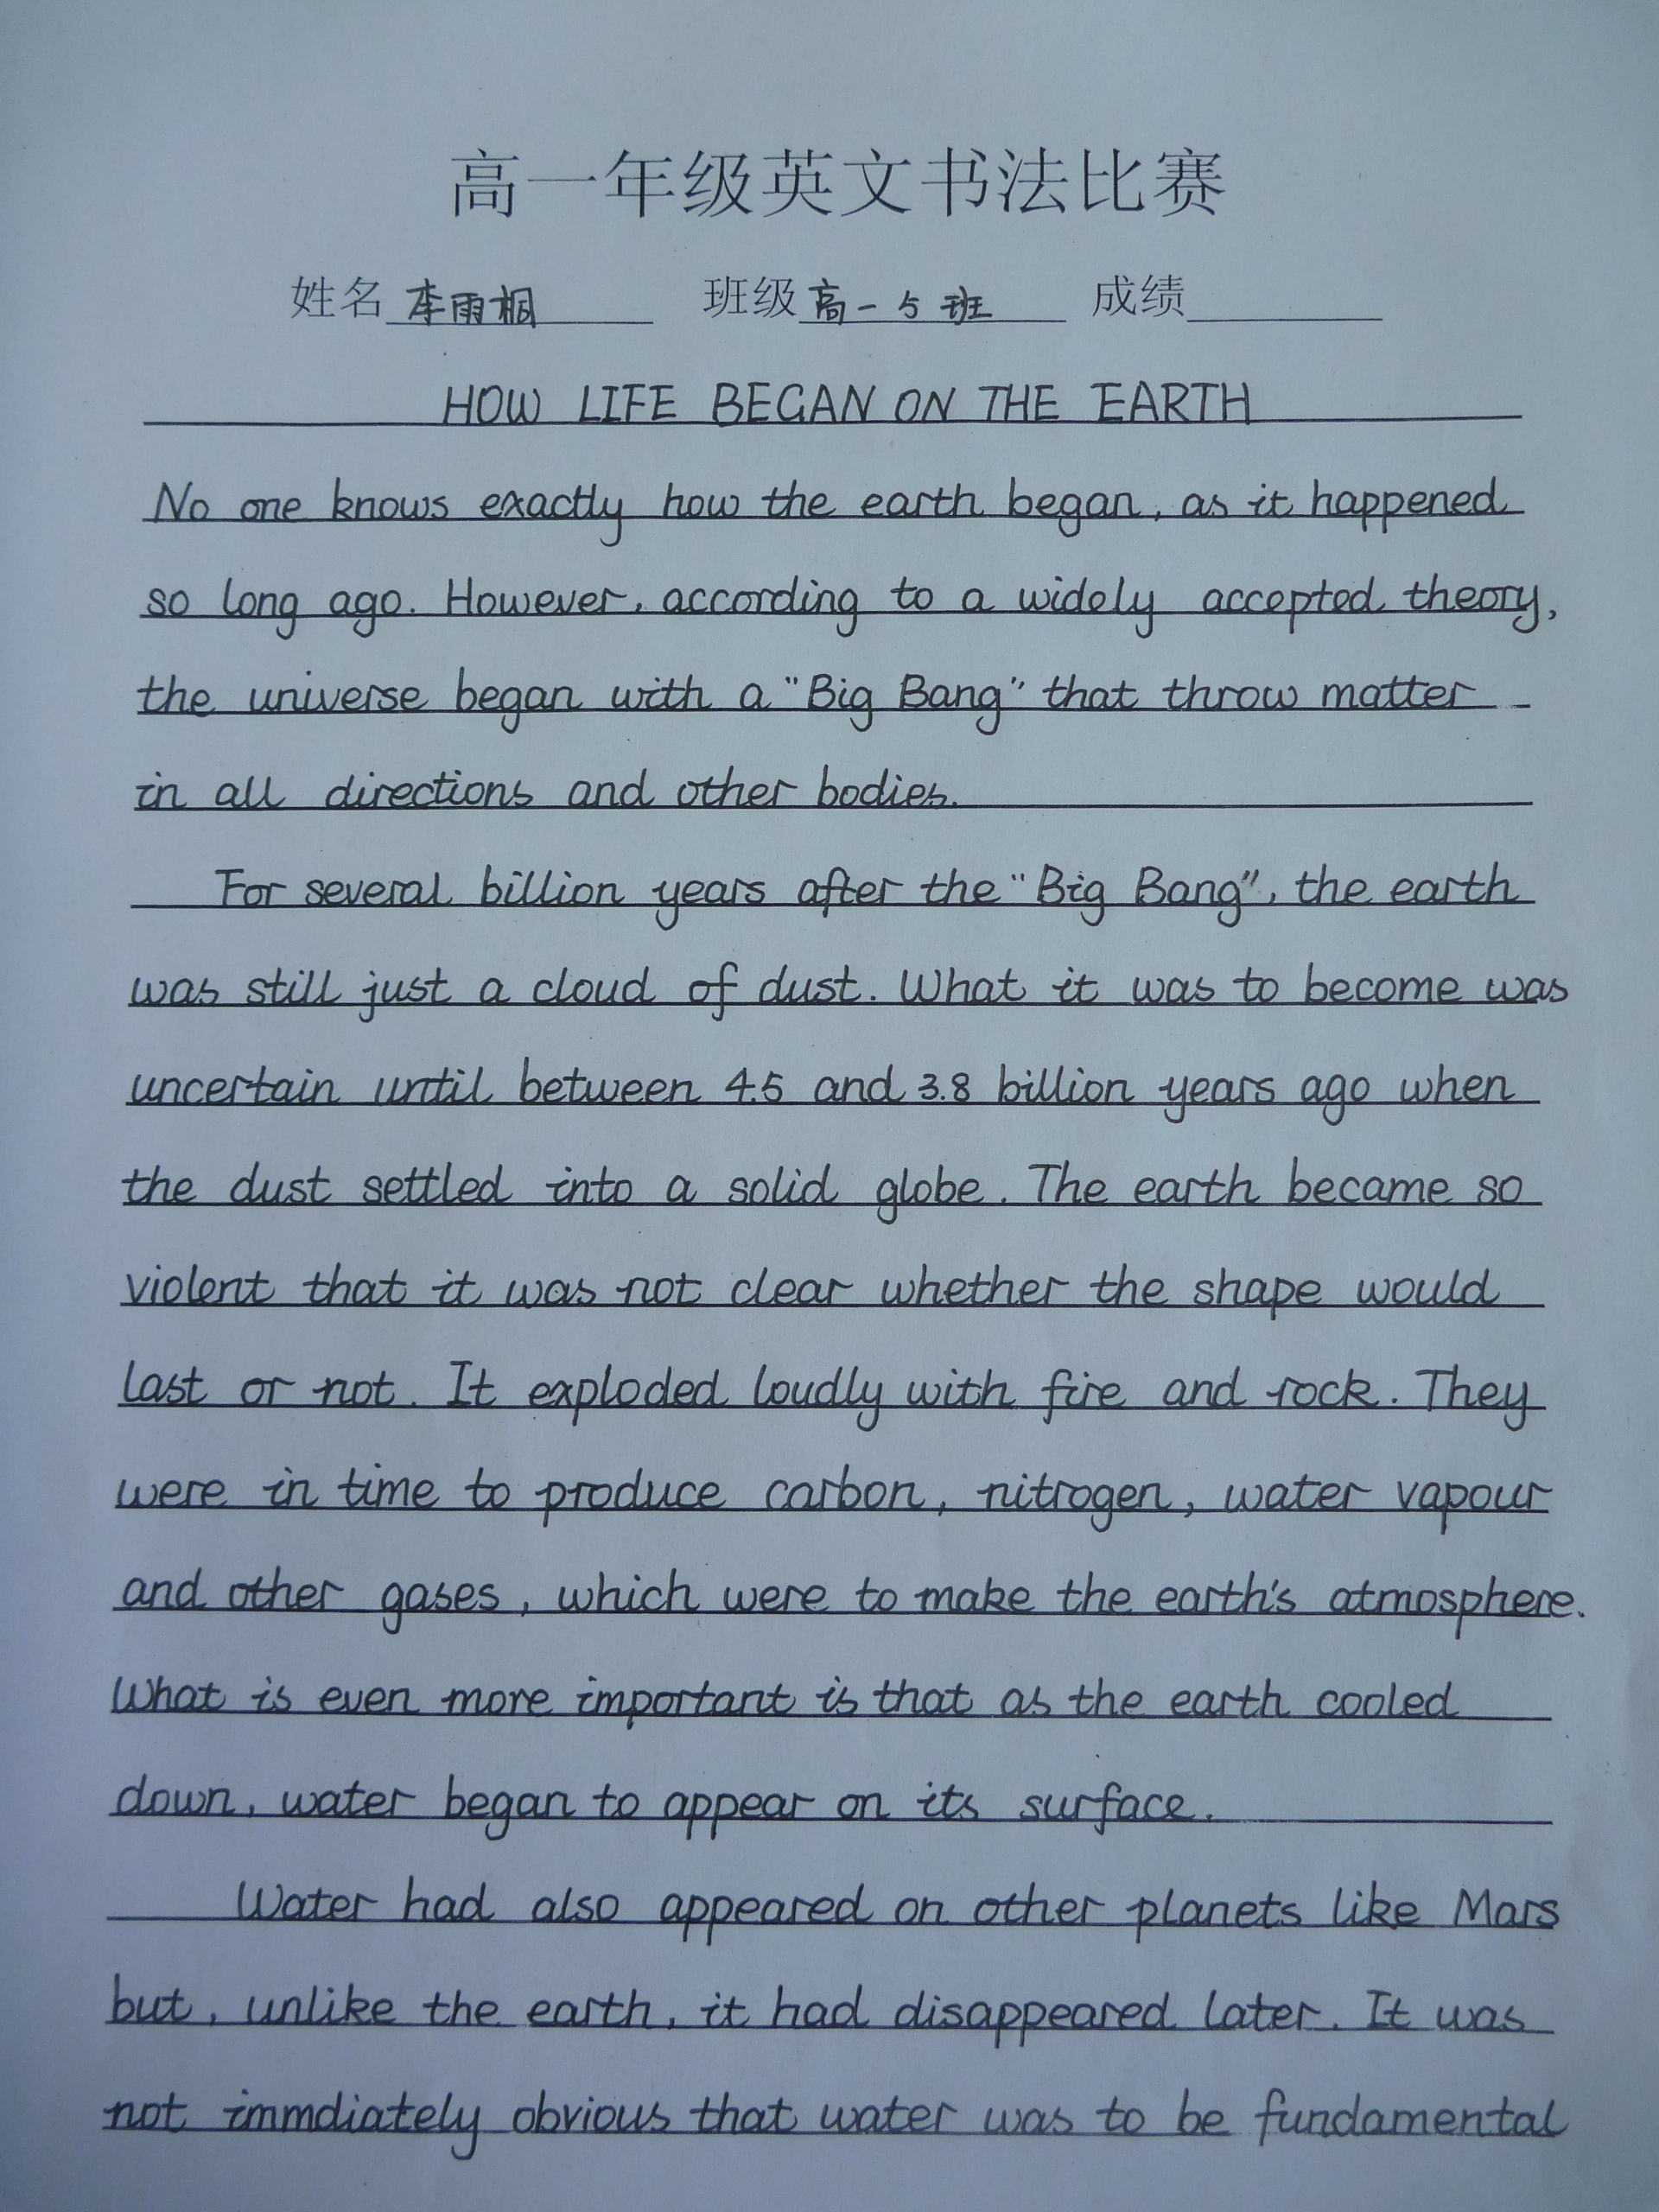 高一年级英文书法比赛
姓名 李雨桐 班级 高一5班 成绩
HOW LIFE BEGAN ON THE EARTH
No one knows exactly how the earth began, as it happened
so long ago. However, according to a widely accepted theory,
the universe began with a "Big Bang" that throw matter
in all directions and other bodies.
For several billion years after the "Big Bang", the earth
was still just a cloud of dust. What it was to become was
uncertain until between 4.5 and 3.8 billion years ago when
the dust settled into a solid globe. The earth became so
violent that it was not clear whether the shape would
last or not. It exploded loudly with fire and rock. They
were in time to produce carbon, nitrogen, water vapour
and other gases, which were to make the earth's atmosphere.
What is even more important is that as the earth cooled
down, water began to appear on its surface.
Water had also appeared on other planets like Mars
but, unlike the earth, it had disappeared later. It was
not immdiately obvious that water was to be fundamental